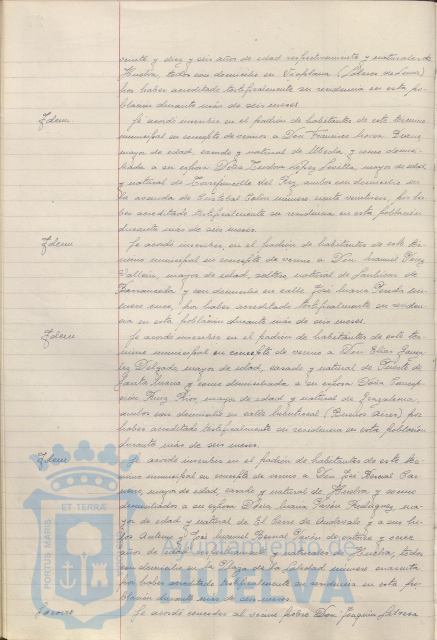 veinte y diez y seis años de edad respectivamente y naturales de
Huelva, todos con domicilio en
por haber acreditado testificalmente su residencia en esta po-
blación durante más de seis meses.
Idem Se acordó inscribir en el padrón de habitantes de este término
municipal en concepto de vecinos a Don Francisco
mayor de edad, casado y natural de Ubeda, y como domici-
liada a su esposa Doña Teodora López Sevilla, mayor de edad
y natural de ambos con domicilio en
la avenida de Cristobal Colon número por ha-
ber acreditado testificalmente su residencia en esta población
durante más de seis meses.
Idem Se acordó inscribir, en el padrón de habitantes de este tér-
mino municipal en concepto de vecino a Don Manuel Pérez
mayor de edad, soltero, natural de Sanlúcar de
Barrameda y con domicilio en calle José María nú-
mero once, por haber acreditado testificalmente su residen-
cia en esta población durante más de seis meses.
Idem Se acordó inscribir en el padrón de habitantes de este tér-
mino municipal en concepto de vecino a Don Elías Gonza-
lez Delgado, mayor de edad, casado y natural de Puerto de
Santa María y como domiciliada a su esposa Doña Concep-
ción Ruiz Rios, mayor de edad y natural de Grazalema,
ambos con domicilio en calle (Buenos Aires) por
haber acreditado testificalmente su residencia en esta población
durante más de seis meses.
Idem Se acordó inscribir en el padrón de habitantes de este tér-
mino municipal en concepto de vecino a Don José Bernal
mayor de edad, casado y natural de Huelva y como
domiciliados a su esposa Doña María Pavón Rodríguez, ma-
yor de edad y natural de El Cerro de Andevalo y a sus hi-
jos Antonio y José Manuel Bernal Pavón de catorce y once
años de edad y naturales de Huelva, todos
con domicilio en la Plaza de la Soledad número cuarenta
por haber acreditado testificalmente su residencia en esta po-
blación durante más de seis meses.
Socorro Se acordó conceder al vecino pobre Don Joaquín
PORTUS MARIS
ET TERRAE
Ayuntamiento de
HUELVA